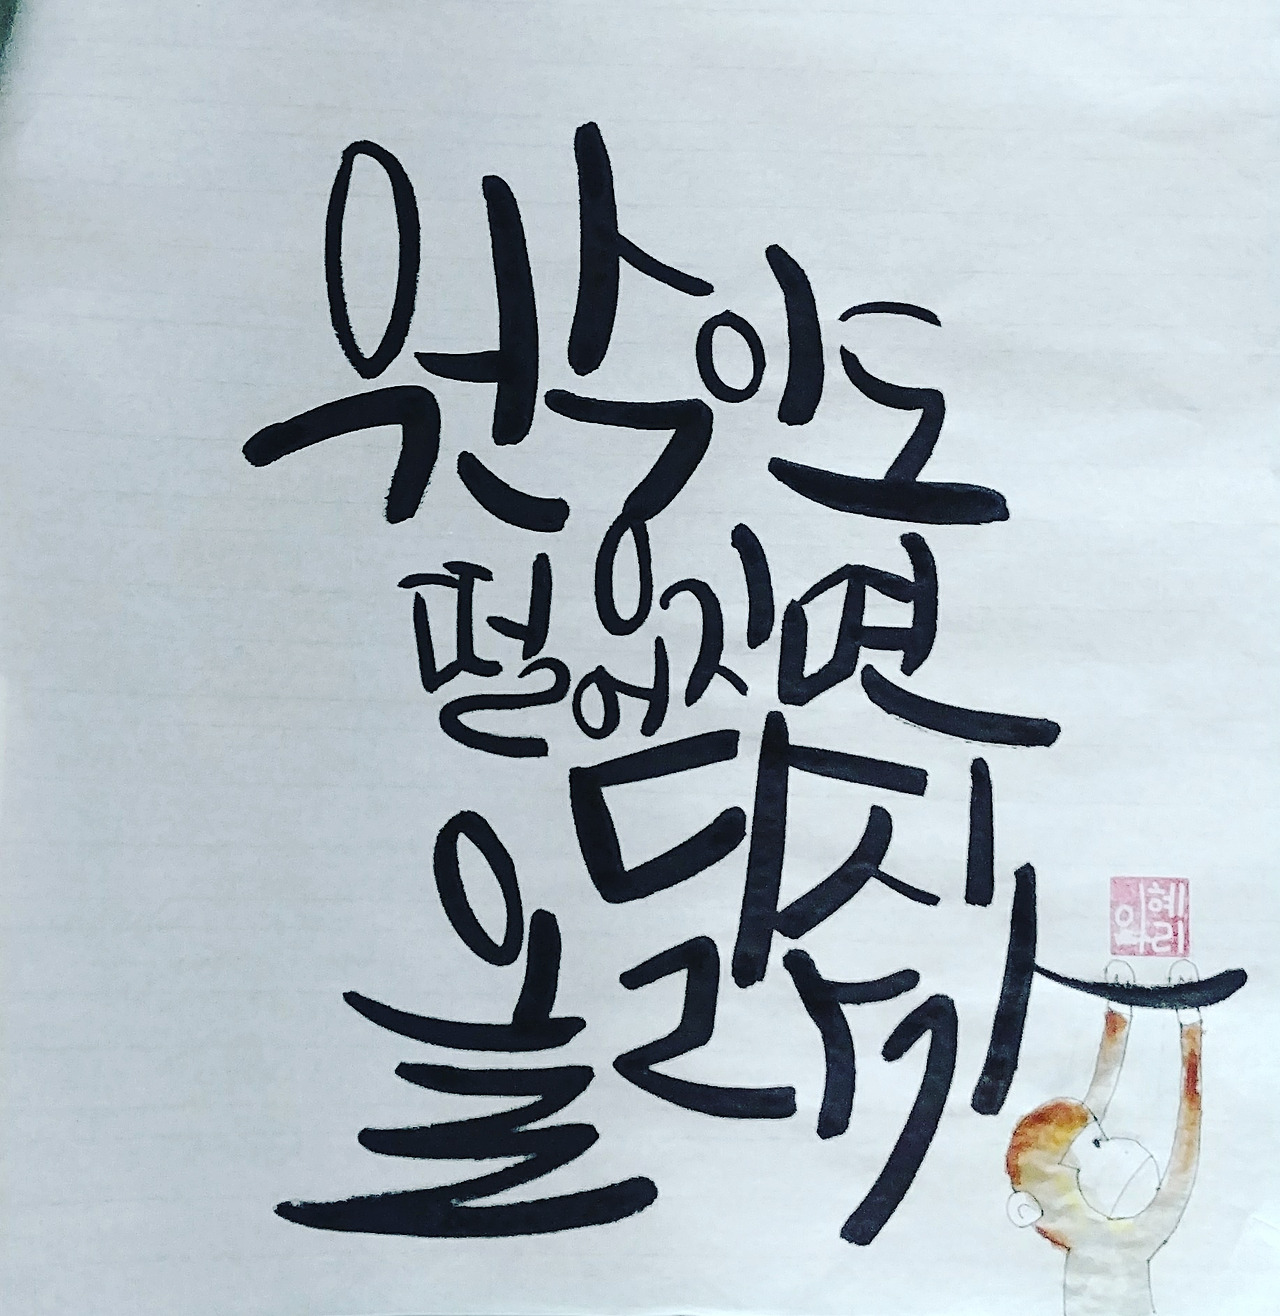 원숭이도
떨어지면
다시
올라가
혜
리